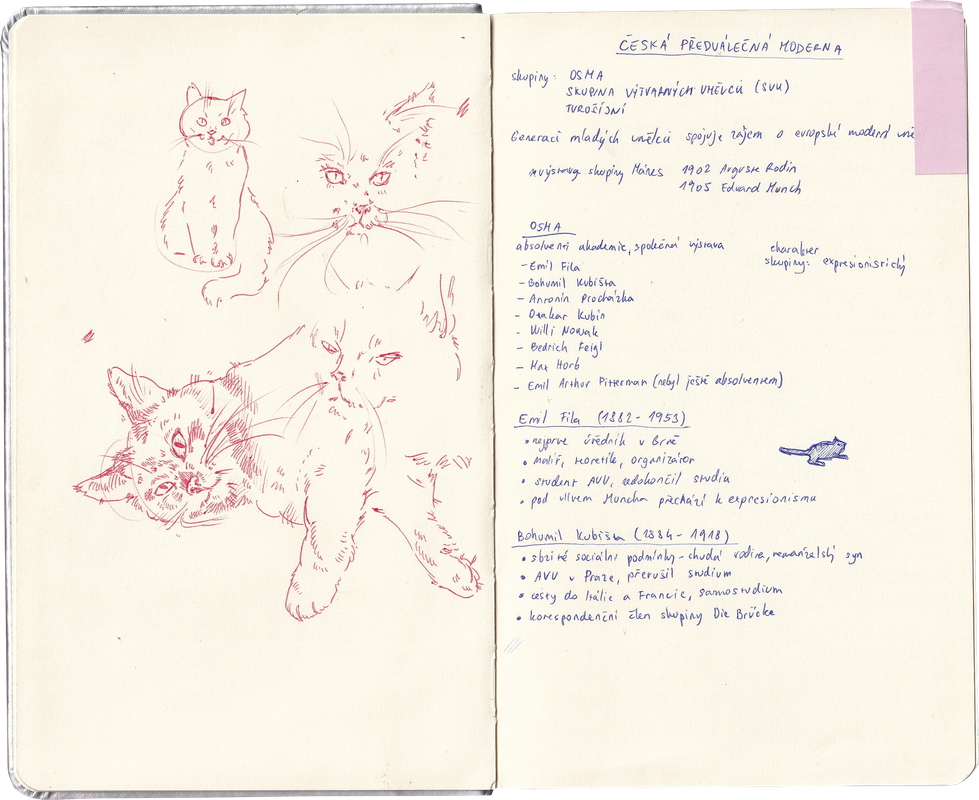 ČESKÁ PŘEDVÁLEČNÁ MODERNA
skupiny: OSMA
SKUPINA VÝTVARNÝCH UMĚLCŮ (SVU)
TVRDOŠÍJNÍ
Generaci mladých umělců spojuje zájem o evropské moderní umě
výstava skupiny Mánes 1902 Auguste Rodin
1905 Edvard Munch
OSMA
absolventi akademie, společná výstava
charakter
skupiny: expresionistický
- Emil Filla
- Bohumil Kubišta
- Antonín Procházka
- Otakar Kubín
- Willi Nowak
- Bedřich Feigl
- Max Horb
- Emil Arthur Pitterman (nebyl ještě absolventem)
Emil Filla (1882 - 1953)
• nejprve úředník v Brně
• malíř, teoretik, organizátor
• student AVU, nedokončil studia
• pod vlivem Muncha přechází k expresionismu
Bohumil Kubišta (1884 - 1918)
• sociální podmínky - chudá rodina, nemanželský syn
• AVU v Praze, přerušil studium
• cesty do Itálie a Francie, samostudium
• korespondenční člen skupiny Die Brücke